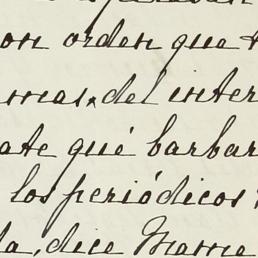 on orden que
mas, del inter
ate qué barbar
los periódicos
da, dice Mame